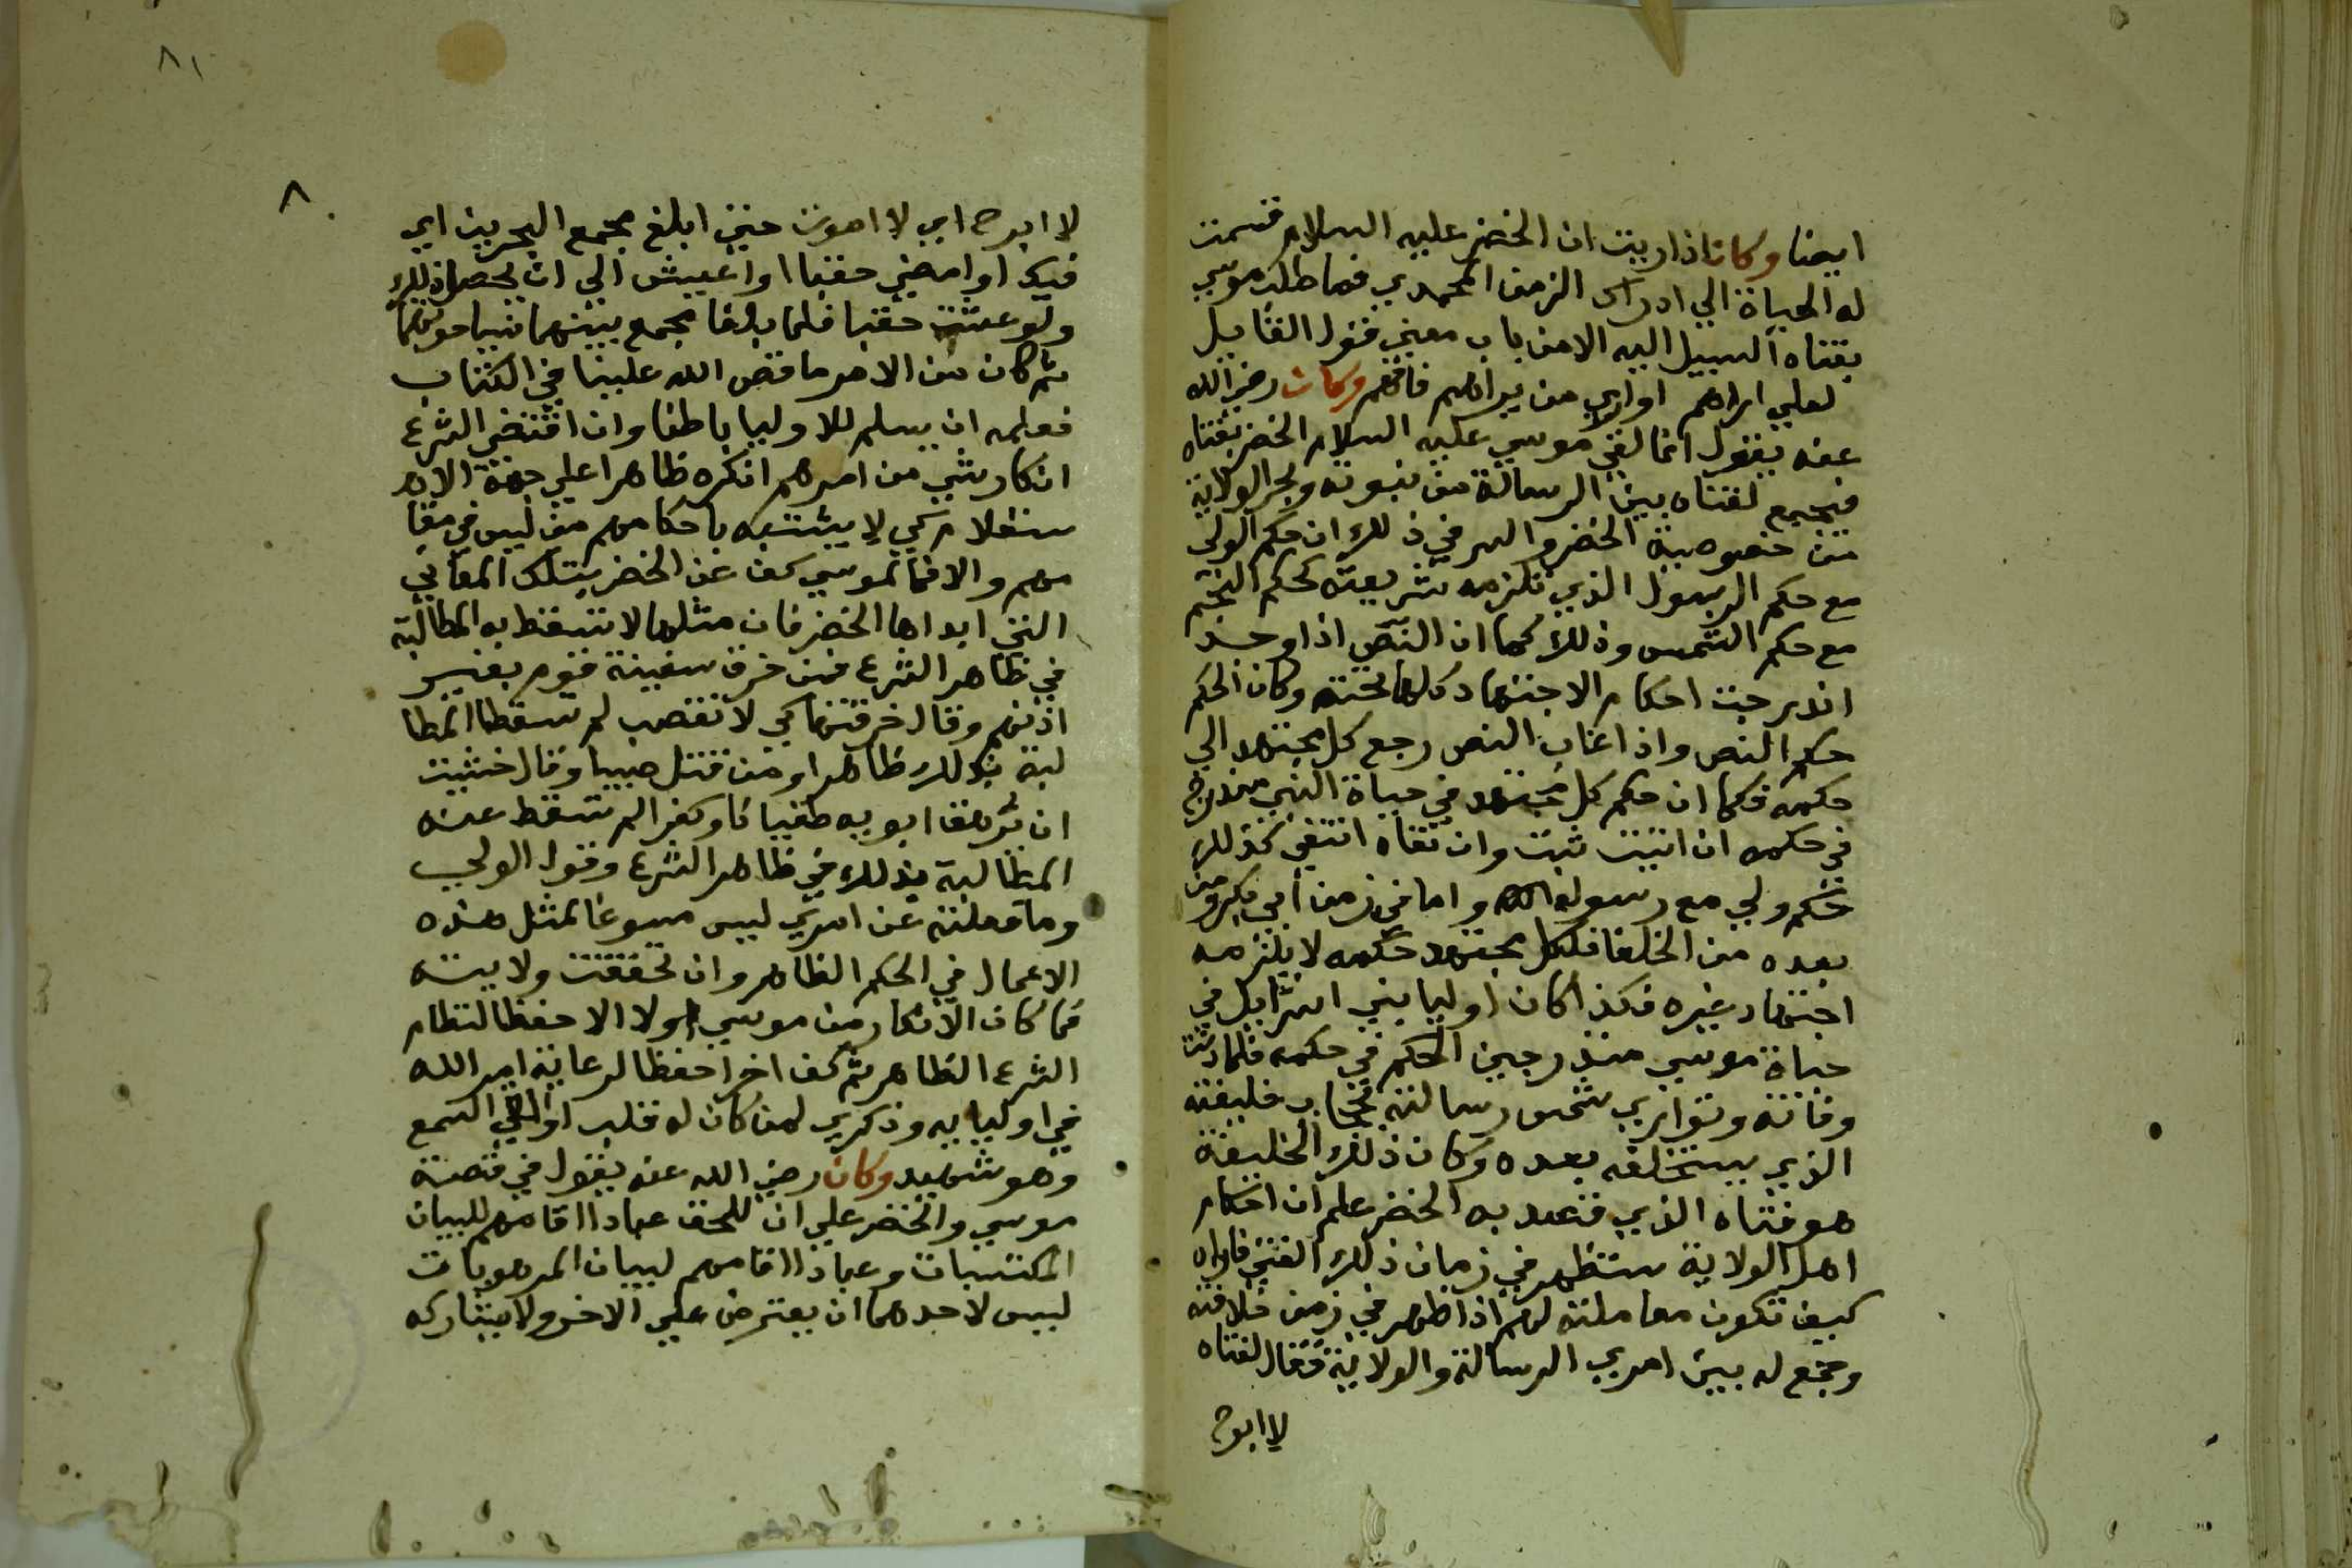 ايضا وكان اذا ريت ان الخضر عليه السلام قسمت
له الحياة الي ادراك الزمن المحمدي فما طلب موسي
بفتاه السبيل اليه الا من باب معني قول القايل
لعلي اراهم او اري من يراهم فافهم وكان رضي الله
عنه يقول انما لقي موسي عليه السلام الخضر بفتاه
فيجمع لفتاه بين الرسالة من نبوته وبحر الولاية
من خصوصية الخضر والسر في ذلك ان حكم الولي
مع حكم الرسول الذي تلزمه شريعته كحكم النجم
مع حكم الشمس وذلك كما ان النص اذا وجد
اندرجت احكام الاجتهاد كلها تحته وكان الحكم
حكم النص واذا غاب النص رجع كل مجتهد الي
حكمه فكما ان حكم كل مجتهد في حياة النبي مندرج
في حكمه ان اثبت ثبت وان نفاه انتفي كذلك
حكم ولي مع رسوله واما في زمن ابي بكر ومن
بعده من الخلفا فلكل مجتهد حكمه لا يلزمه
اجتهاد غيره فكذا كان اوليا بني اسرايل في
حياة موسي مندرجين الحكم في حكمه فلما دنت
وفاته وتواري شمس رسالته بحجاب خليفته
الذي يستخلفه بعده وكان ذلك الخليفة
هو فتاه الذي قصد به الخضر علم ان احكام
اهل الولاية ستظهر في زمان ذلك الفتي فاراه
كيف تكون معاملته لهم اذا ظهر في زمن خلافته
وجمع له بين امري الرسالة والولاية فقال لفتاه
لا ابرح
٨١
٨٠
لا ابرح اي لا اموت حتي ابلغ مجمع البحرين اي
فيك او امضي حقبا او اعيش الي ان يحصل ذلك
ولو عشت حقبا فلما بلغا مجمع بينهما نسيا حوتهما
ثم كان من الامر ما قص الله علينا في الكتاب
فعلمه ان يسلم للاوليا باطنا وان اقتضي الشرع
انكار شي من امرهم انكره ظاهرا علي جهة الامر
ستعلام كي لا يتشبه باحكامهم من ليس في مقا
مهم والا فما لموسي كف عن الخضر بتلك المعاني
التي ابداها الخضر فان مثلها لا تسقط به المطالبة
في ظاهر الشرع فمن خرق سفينة قوم بغير
اذنهم وقال خرقتها كي لا تغتصب لم تسقط المطا
لبة بذلك ظاهرا ومن قتل صبيا وقال خشيت
ان يرهق ابويه طغيانا وكفرا لم تسقط عنه
المطالبة بذلك في ظاهر الشرع وقول الولي
وما فعلته عن امري ليس مسوغا لمثل هذه
الاعمال في الحكم الظاهر وان تحققت ولايته
فما كان الانكار من موسي اولا الا حفظا لنظام
الشرع الظاهر ثم كف اخرا حفظا لرعاية امر الله
في اوليايه وذكري لمن كان له قلب او القي السمع
وهو شهيد وكان رضي الله عنه يقول في قصة
موسي والخضر علي ان للحق عبادا اقامهم لبيان
المكتسبات وعبادا اقامهم لبيان الموهوبات
ليس لاحدهما ان يعترض علي الاخر ولا يشاركه